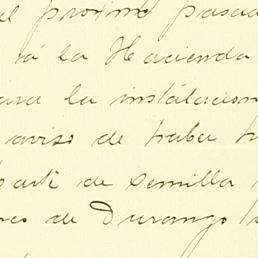 el proximo pasad
rá la Hacienda
ara la instalacion
aviso de haber
parte de semilla
de Durango